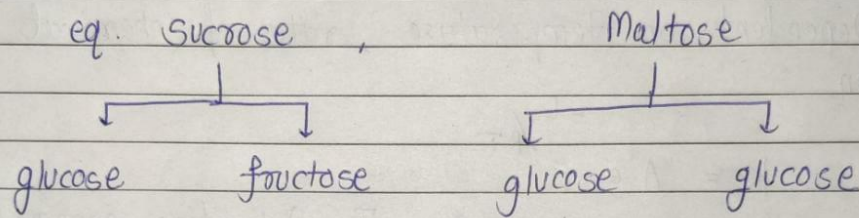 eq. Sucrose , Maltose
glucose fructose glucose glucose